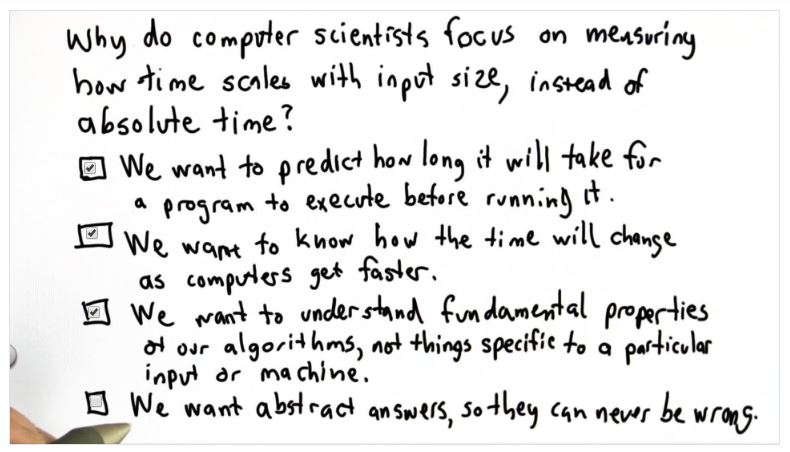 Why do computer scientists focus on measuring
how time scales with input size, instead of
absolute time?
We want to predict how long it will take for
a program to execute before running it.
We want to know how the time will change
as computers get faster.
We want to understand fundamental properties
of our algorithms, not things specific to a particular
input or machine.
We want abstract answers, so they can never be wrong.